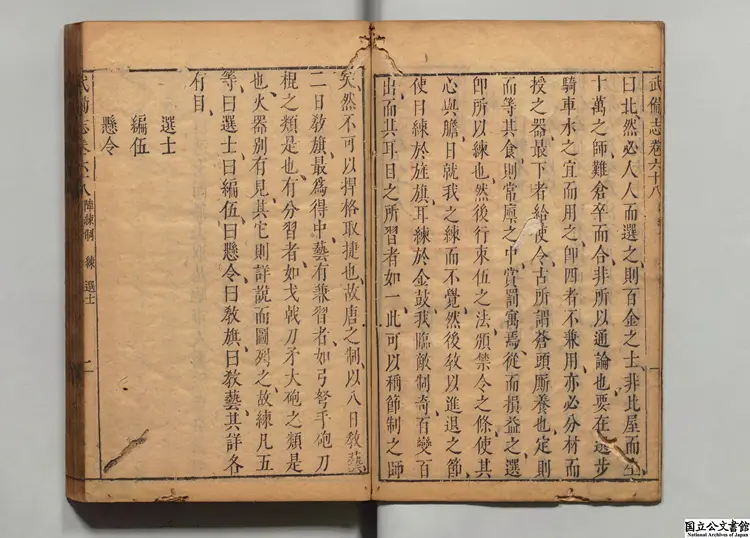 武備志卷六十八
曰北然必人人而選之則百金之士非北屋而
十萬之師難倉卒而合非所以通論也要在選步
騎車水之宜而用之卽四者不兼用亦必分材而
授之器最下者給使令古所謂蒼頭廝養也定則
而等其食則常廩之中賞罰寓焉從而損益之選
卽所以練也然後行束伍之法頒禁令之條使其
心與膽日就我之練而不覺然後敎以進退之節
使目練於旌旗耳練於金鼓我臨敵制奇百變百
出而其耳目之所習者如一此可以稱節制之師
矣然不可以捍格取捷也故唐之制以八日敎藝
二日敎旗最爲得中藝有兼習者如弓弩手砲刀
棍之類是也有分習者如戈戟刀矛大砲之類是
也火器别有見其它則詳說而圖列之故練凡五
等曰選士曰編伍曰懸令曰敎旗曰敎藝其詳各
有目
選士
編伍
懸令
武備志卷六十八 陣練制 練 選士 二
国立公文書館
National Archives of Japan